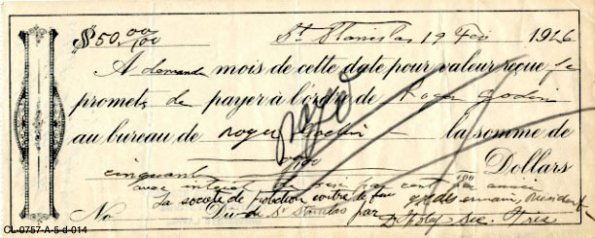 $50.00/100 St Stanislas 19 Fev 1926
A demande mois de cette date pour valeur reçue je
promets de payer à l'ordre de Roger Godin
au bureau de Roger Godin la somme de
payé
cinquante 00/100 Dollars
avec interet de six par cent par année
La société de protection contre le feu
No Dû de St Stanislas par Sec. Tres
CL-0757-A-5-d-014